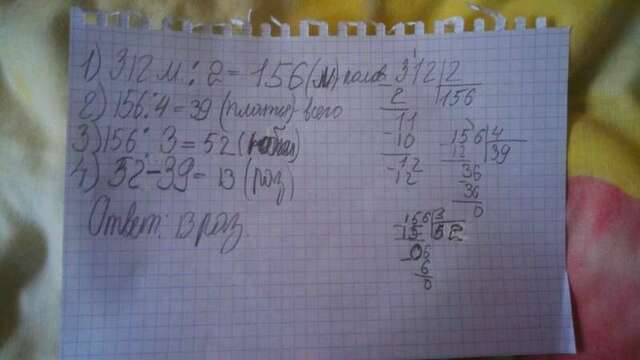 1) 312 м : 2 = 156 (м) полов
2) 156:4=39 (платья) всего
3) 156:3=52 (
4) 52-39=13 (раз)
Ответ: 13 раз.
312|2
2 156
11
-10
-12
12
156|4
12 39
36
36
0
156|3
15 52
06
6
0